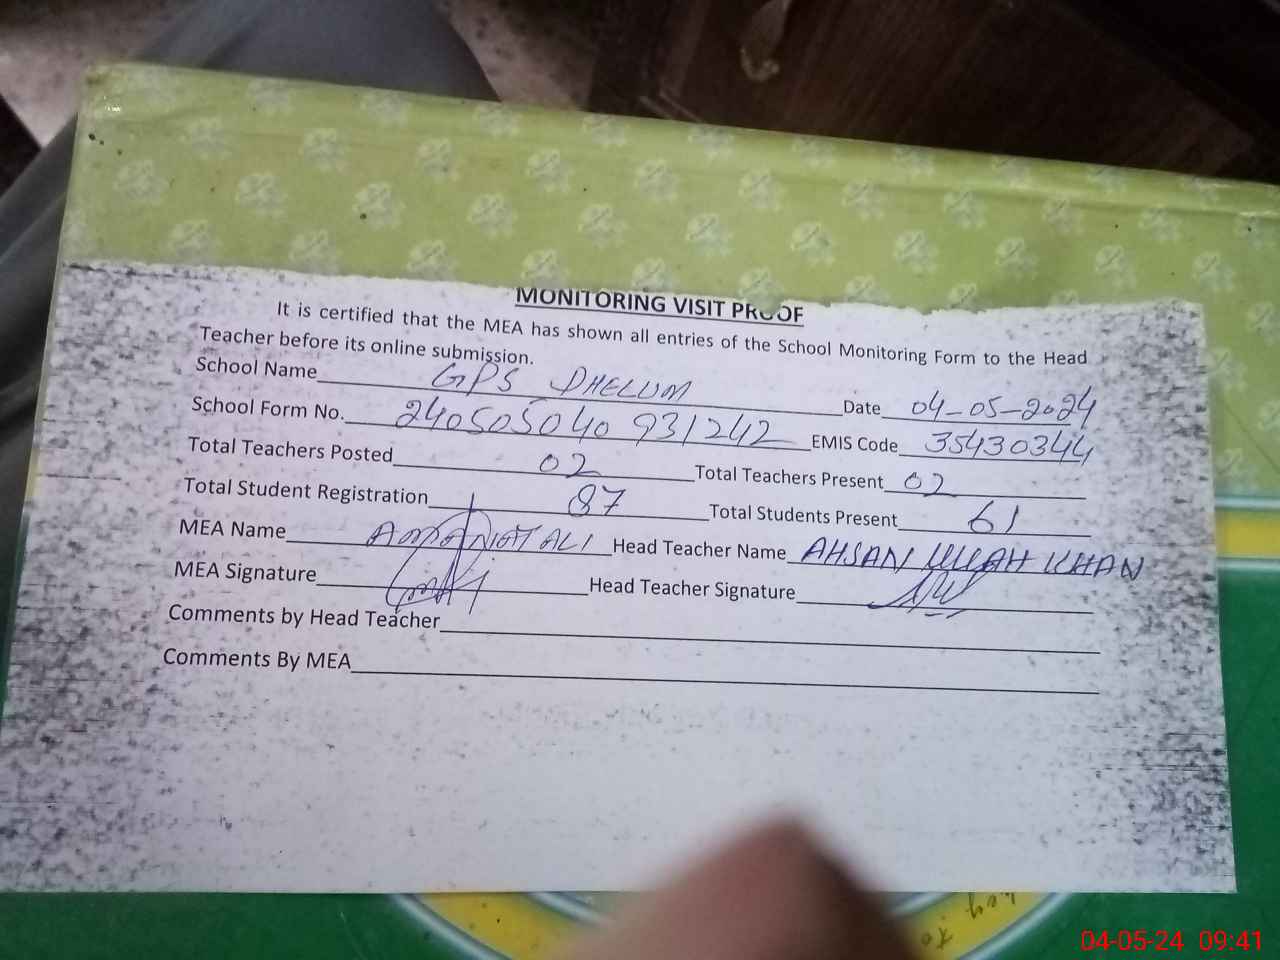 MONITORING VISIT PROOF
It is certified that the MEA has shown all entries of the School Monitoring Form to the Head
Teacher before its online submission.
School Name GPS DHELUM Date 04-05-2024
School Form No. 240505040931242 EMIS Code 35430344
Total Teachers Posted 02 Total Teachers Present 02
Total Student Registration 87 Total Students Present 61
MEA Name AMANAT ALI Head Teacher Name AHSAN ULLAH KHAN
MEA Signature Head Teacher Signature
Comments by Head Teacher
Comments By MEA
04-05-24 09:41